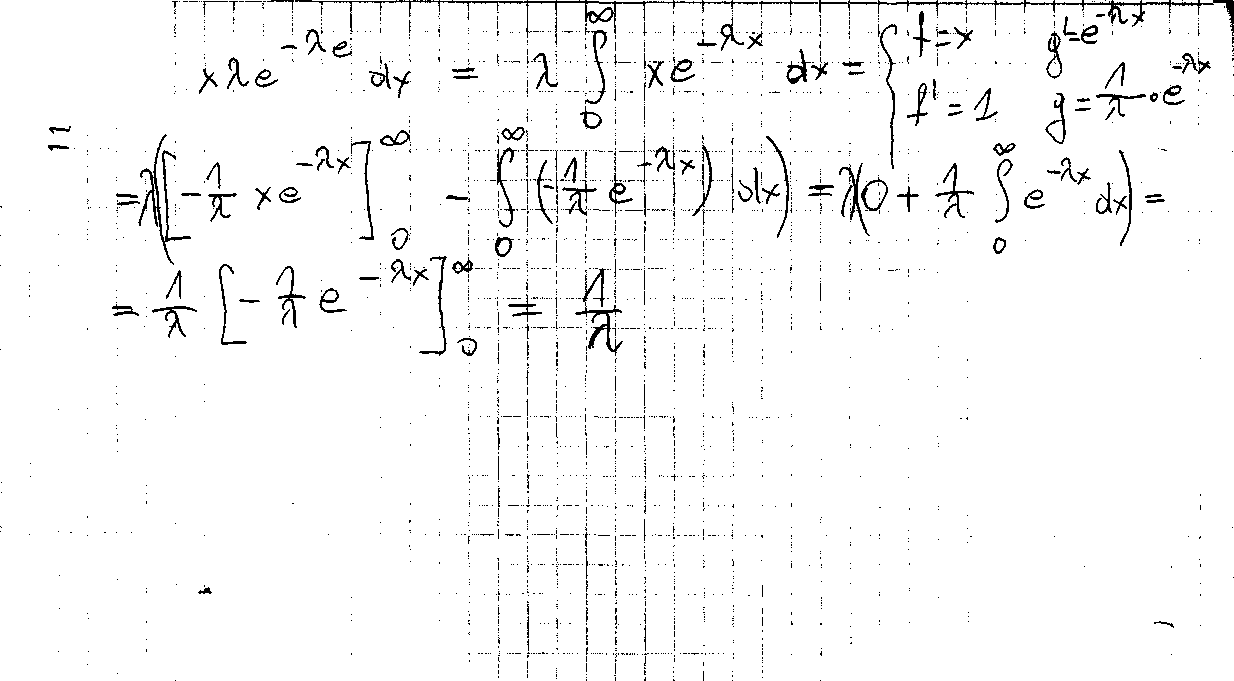 xλe^{-λe} dx = λ ∫_0^∞ xe^{-λx} dx = { f=x g'=e^{-λx}
f'=1 g=\frac{1}{λ}·e^{-λx}
=
=λ([-\frac{1}{λ} xe^{-λx}]_0^∞ - ∫_0^∞ (-\frac{1}{λ} e^{-λx}) dx) = λ(0 + \frac{1}{λ} ∫_0^∞ e^{-λx} dx) =
= \frac{1}{λ} [-\frac{1}{λ} e^{-λx}]_0^∞ = \frac{1}{λ}